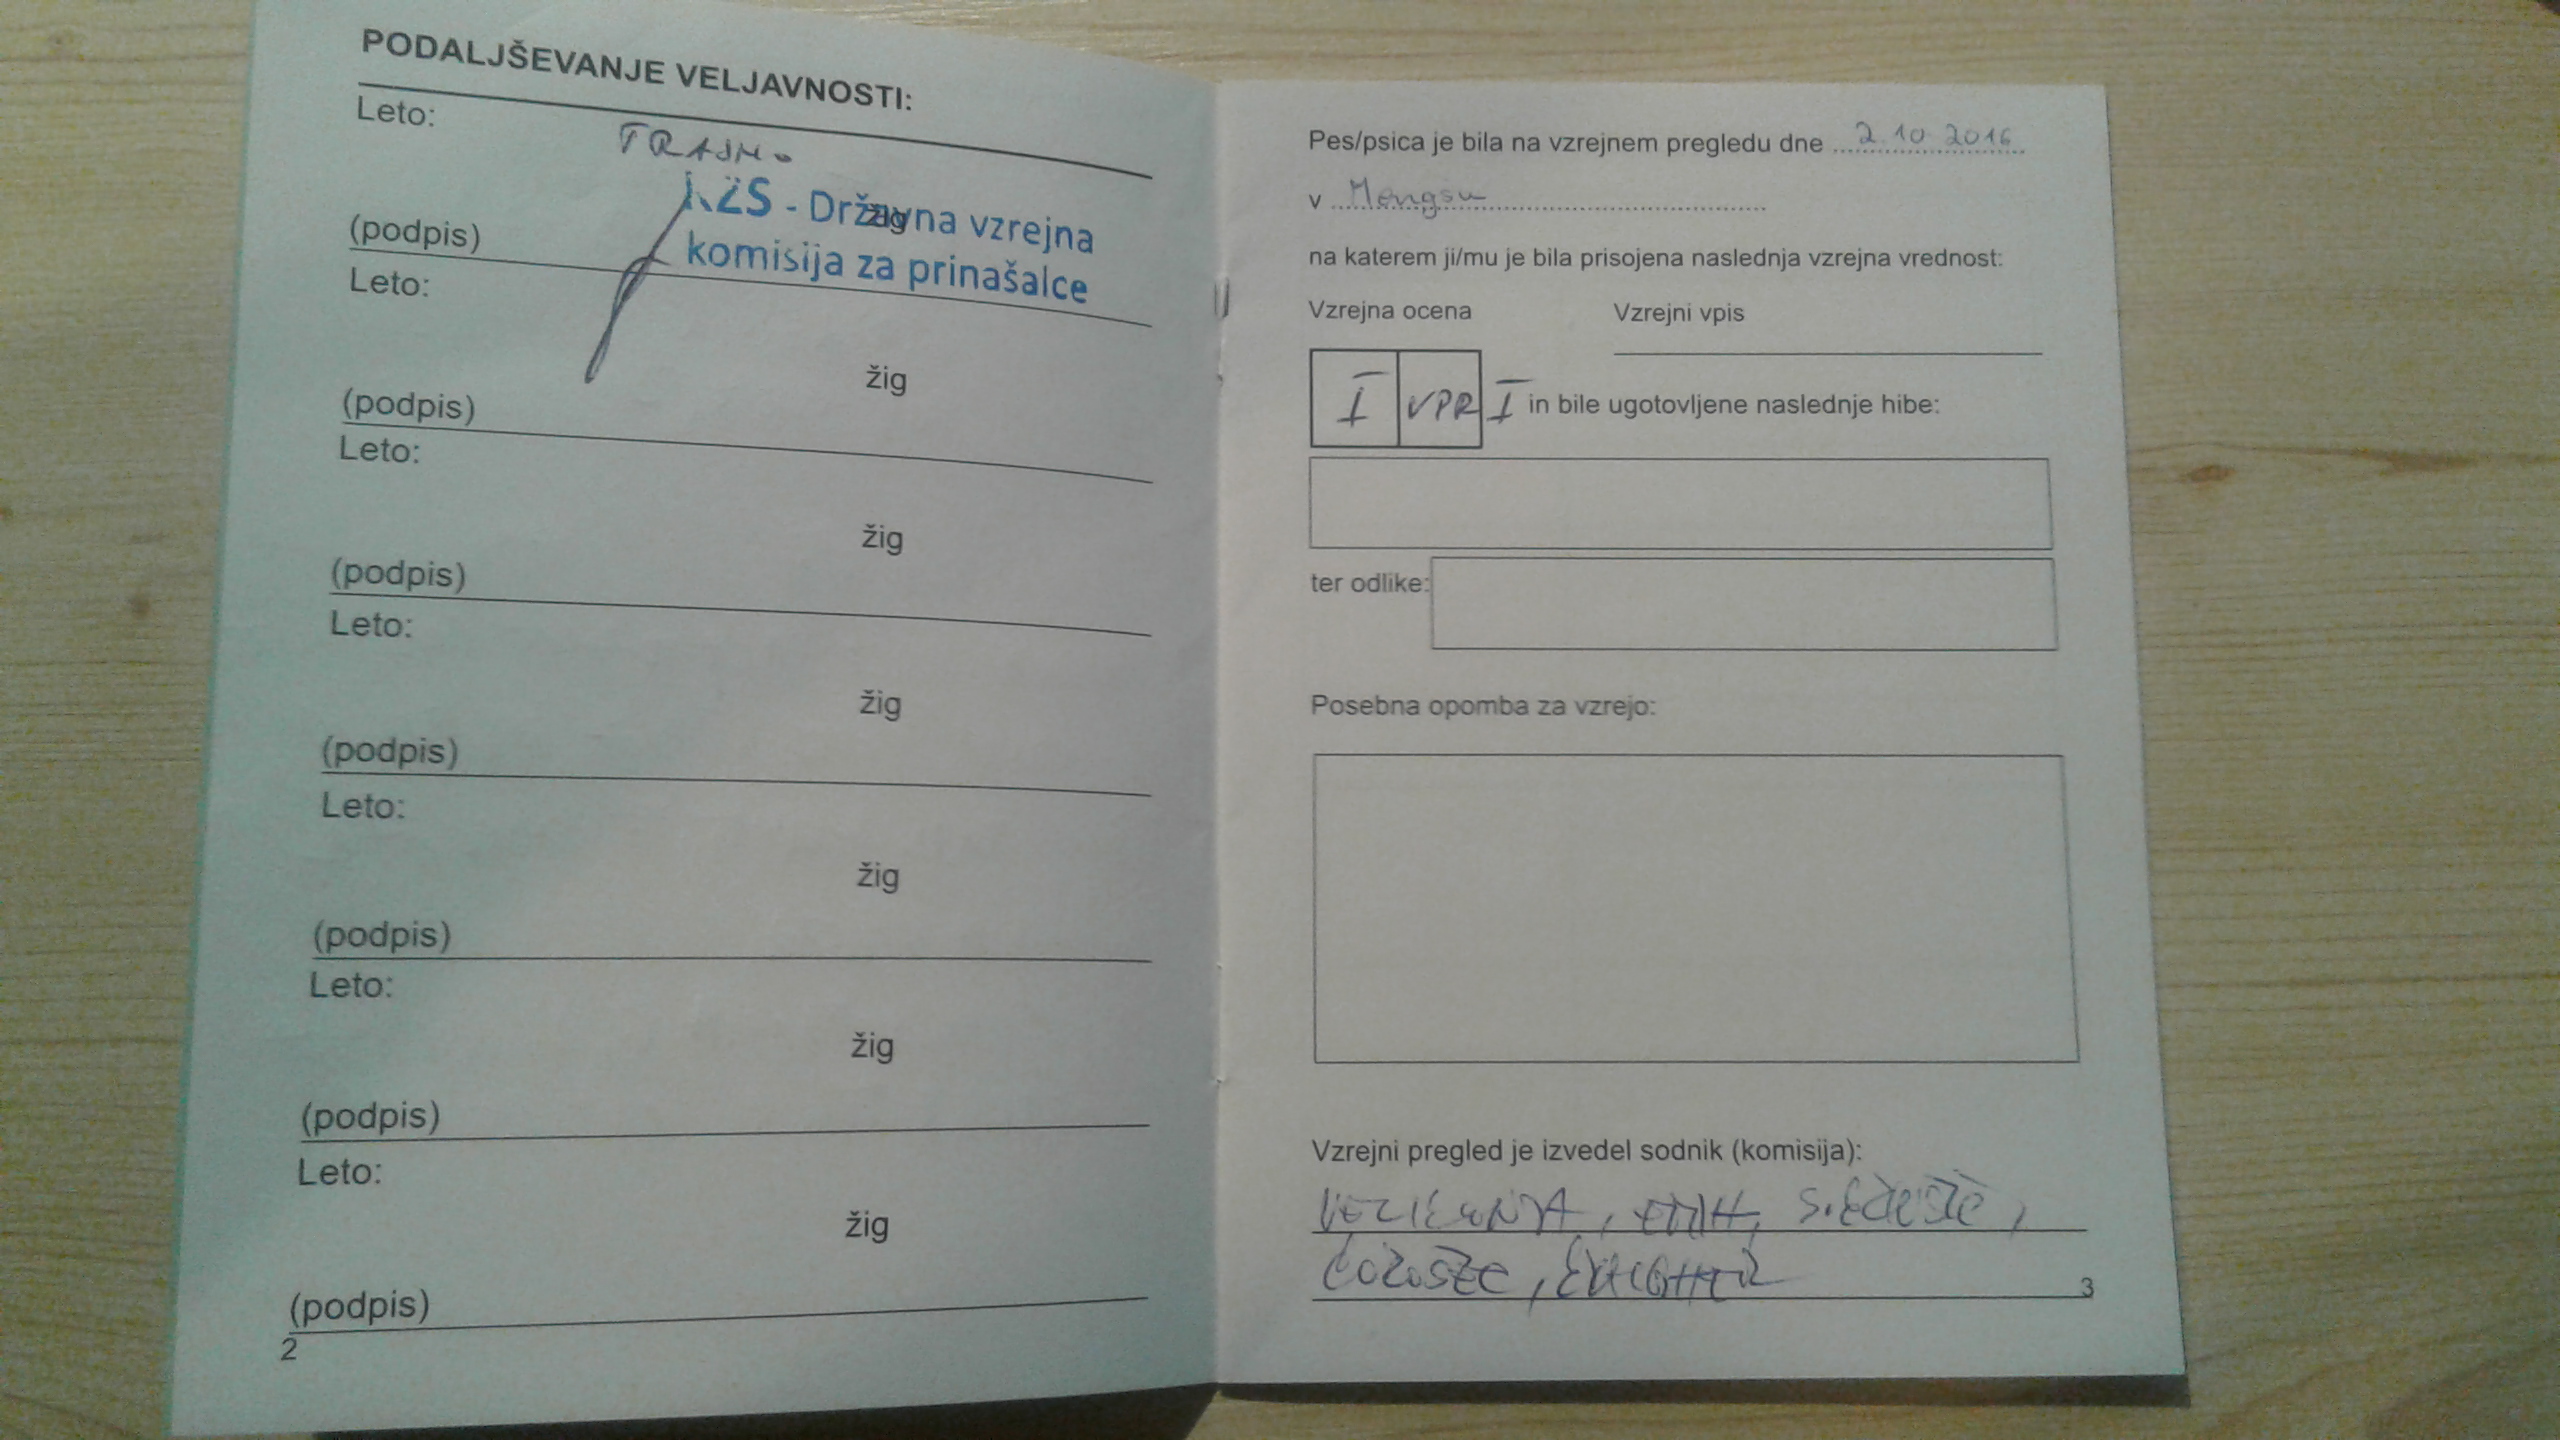 PODALJŠEVANJE VELJAVNOSTI:
Leto:
TRAJNO
KZS - Državna vzrejna
žig
komisija za prinašalce
(podpis)
Leto:
žig
(podpis)
Leto:
žig
(podpis)
Leto:
žig
(podpis)
Leto:
žig
(podpis)
Leto:
žig
(podpis)
Leto:
žig
(podpis)
2
Pes/psica je bila na vzrejnem pregledu dne 2.10.2016
v Mengšu
na katerem ji/mu je bila prisojena naslednja vzrejna vrednost:
Vzrejna ocena Vzrejni vpis
I VPR I in bile ugotovljene naslednje hibe:
ter odlike:
Posebna opomba za vzrejo:
Vzrejni pregled je izvedel sodnik (komisija):
3